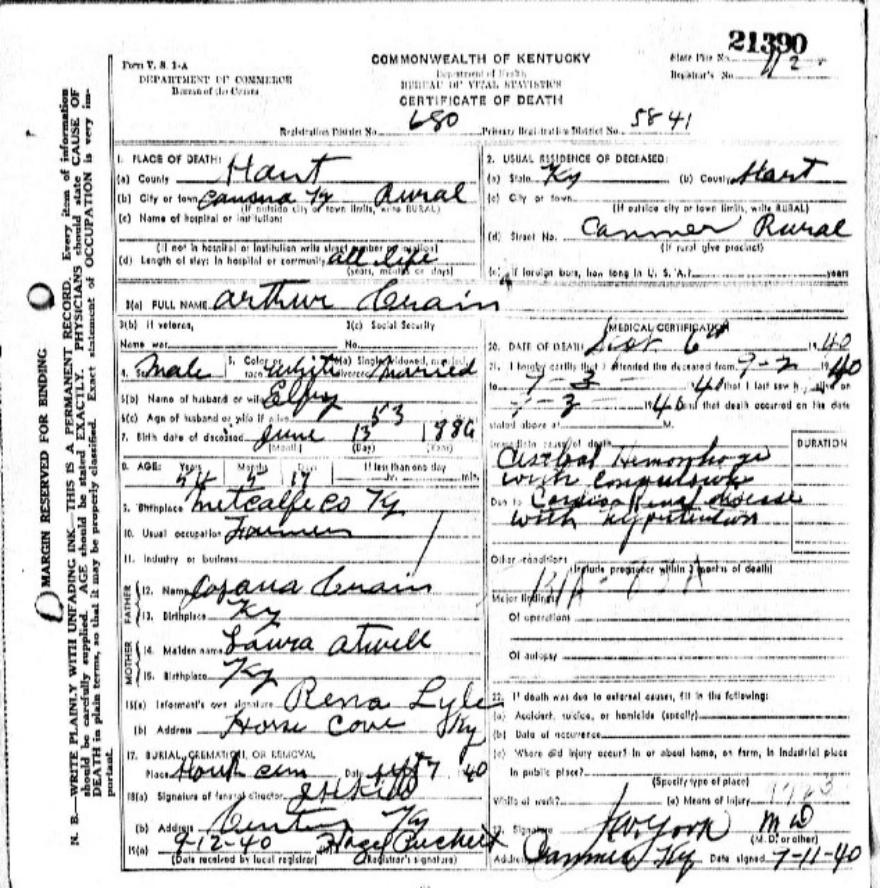 21390
Form V. S. 1-A
DEPARTMENT OF COMMERCE
Bureau of the Census
COMMONWEALTH OF KENTUCKY
Department of Health
BUREAU OF VITAL STATISTICS
CERTIFICATE OF DEATH
State File No.
Registrar's No.
Registration District No. 680 Primary Registration District No. 5841
1. PLACE OF DEATH:
(a) County Hart
(b) City or town Ky Rural
(If outside city or town limits, write RURAL)
(c) Name of hospital or institution:
(If not in hospital or institution write street number or location)
(d) Length of stay: In hospital or community all life
(years, months or days)
2. USUAL RESIDENCE OF DECEASED:
(a) State Ky (b) County Hart
(c) City or town
(If outside city or town limits, write RURAL)
(d) Street No. Canmer Rural
(If rural give precinct)
(e) If foreign born, how long in U. S. A.? years
3(a) FULL NAME Arthur Crain
3(b) If veteran,
Name war
3(c) Social Security
No.
4. Sex Male 5. Color or race white 6(a) Single, widowed, married, divorced Married
6(b) Name of husband or wife
6(c) Age of husband or wife if alive 53
7. Birth date of deceased June 13 1886
(Month) (Day) (Year)
8. AGE: Years Months Days If less than one day
54 17 hr. min.
9. Birthplace Metcalfe Co Ky
10. Usual occupation Farmer
11. Industry or business
FATHER
12. Name Crain
13. Birthplace Ky
MOTHER
14. Maiden name Laura Atwell
15. Birthplace Ky
16(a) Informant's own signature Rena Lyle
(b) Address Horse Cave Ky
17. BURIAL, CREMATION, OR REMOVAL
Place cem Date Sept 7 1940
18(a) Signature of funeral director
(b) Address Ky
19(a) 9-12-40
(Date received by local registrar) (Registrar's signature)
MEDICAL CERTIFICATION
20. DATE OF DEATH Sept 6th 1940
21. I hereby certify that I attended the deceased from 9-2 1940
to 40 that I last saw h alive on
1940 and that death occurred on the date
stated above at M.
Immediate cause of death
DURATION
Cerebral Hemorrhage
with convulsions
Due to Cardio Renal disease
with hypertension
Other conditions
(Include pregnancy within 3 months of death)
Major findings:
Of operations
Of autopsy
22. If death was due to external causes, fill in the following:
(a) Accident, suicide, or homicide (specify)
(b) Date of occurrence
(c) Where did injury occur? In or about home, on farm, in industrial place
in public place?
(Specify type of place)
While at work? (e) Means of Injury
23. Signature M D
(M. D. or other)
Address Canmer Ky Date signed 9-11-40
MARGIN RESERVED FOR BINDING
N. B.—WRITE PLAINLY WITH UNFADING INK—THIS IS A PERMANENT RECORD. Every item of information
should be carefully supplied. AGE should be stated EXACTLY. PHYSICIANS should state CAUSE OF
DEATH in plain terms, so that it may be properly classified. Exact statement of OCCUPATION is very im-
portant.